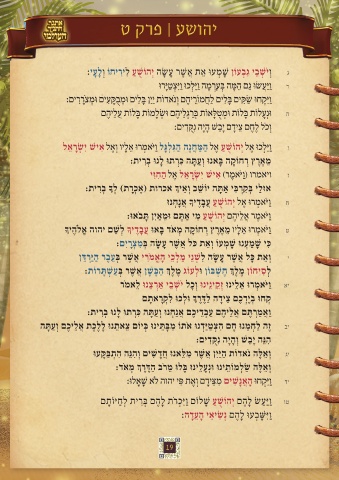 יהושע | פרק ט
ג וְיֹשְׁבֵי גִבְעוֹן שָׁמְעוּ אֵת אֲשֶׁר עָשָׂה יְהוֹשֻׁעַ לִירִיחוֹ וְלָעָי:
ד וַיַּעֲשׂוּ גַם הֵמָּה בְּעָרְמָה וַיֵּלְכוּ וַיִּצְטַיָּרוּ
וַיִּקְחוּ שַׂקִּים בָּלִים לַחֲמוֹרֵיהֶם וְנֹאדוֹת יַיִן בָּלִים וּמְבֻקָּעִים וּמְצֹרָרִים:
ה וּנְעָלוֹת בָּלוֹת וּמְטֻלָּאוֹת בְּרַגְלֵיהֶם וּשְׂלָמוֹת בָּלוֹת עֲלֵיהֶם
וְכֹל לֶחֶם צֵידָם יָבֵשׁ הָיָה נִקֻּדִים:
ו וַיֵּלְכוּ אֶל יְהוֹשֻׁעַ אֶל הַמַּחֲנֶה הַגִּלְגָּל וַיֹּאמְרוּ אֵלָיו וְאֶל אִישׁ יִשְׂרָאֵל
מֵאֶרֶץ רְחוֹקָה בָּאנוּ וְעַתָּה כִּרְתוּ לָנוּ בְרִית:
ז ויאמרו (וַיֹּאמֶר) אִישׁ יִשְׂרָאֵל אֶל הַחִוִּי
אוּלַי בְּקִרְבִּי אַתָּה יוֹשֵׁב וְאֵיךְ אכרות (אֶכְרָת) לְךָ בְרִית:
ח וַיֹּאמְרוּ אֶל יְהוֹשֻׁעַ עֲבָדֶיךָ אֲנָחְנוּ
וַיֹּאמֶר אֲלֵיהֶם יְהוֹשֻׁעַ מִי אַתֶּם וּמֵאַיִן תָּבֹאוּ:
ט וַיֹּאמְרוּ אֵלָיו מֵאֶרֶץ רְחוֹקָה מְאֹד בָּאוּ עֲבָדֶיךָ לְשֵׁם יהוה אֱלֹהֶיךָ
כִּי שָׁמַעְנוּ שָׁמְעוֹ וְאֵת כָּל אֲשֶׁר עָשָׂה בְּמִצְרָיִם:
י וְאֵת כָּל אֲשֶׁר עָשָׂה לִשְׁנֵי מַלְכֵי הָאֱמֹרִי אֲשֶׁר בְּעֵבֶר הַיַּרְדֵּן
לְסִיחוֹן מֶלֶךְ חֶשְׁבּוֹן וּלְעוֹג מֶלֶךְ הַבָּשָׁן אֲשֶׁר בְּעַשְׁתָּרוֹת:
יא וַיֹּאמְרוּ אֵלֵינוּ זְקֵינֵינוּ וְכָל יֹשְׁבֵי אַרְצֵנוּ לֵאמֹר
קְחוּ בְיֶדְכֶם צֵידָה לַדֶּרֶךְ וּלְכוּ לִקְרָאתָם
וַאֲמַרְתֶּם אֲלֵיהֶם עַבְדֵיכֶם אֲנַחְנוּ וְעַתָּה כִּרְתוּ לָנוּ בְרִית:
יב זֶה לַחְמֵנוּ חָם הִצְטַיַּדְנוּ אֹתוֹ מִבָּתֵּינוּ בְּיוֹם צֵאתֵנוּ לָלֶכֶת אֲלֵיכֶם וְעַתָּה
הִנֵּה יָבֵשׁ וְהָיָה נִקֻּדִים:
יג וְאֵלֶּה נֹאדוֹת הַיַּיִן אֲשֶׁר מִלֵּאנוּ חֲדָשִׁים וְהִנֵּה הִתְבַּקָּעוּ
וְאֵלֶּה שַׂלְמוֹתֵינוּ וּנְעָלֵינוּ בָּלוּ מֵרֹב הַדֶּרֶךְ מְאֹד:
יד וַיִּקְחוּ הָאֲנָשִׁים מִצֵּידָם וְאֶת פִּי יהוה לֹא שָׁאָלוּ:
טו וַיַּעַשׂ לָהֶם יְהוֹשֻׁעַ שָׁלוֹם וַיִּכְרֹת לָהֶם בְּרִית לְחַיּוֹתָם
וַיִּשָּׁבְעוּ לָהֶם נְשִׂיאֵי הָעֵדָה:
19